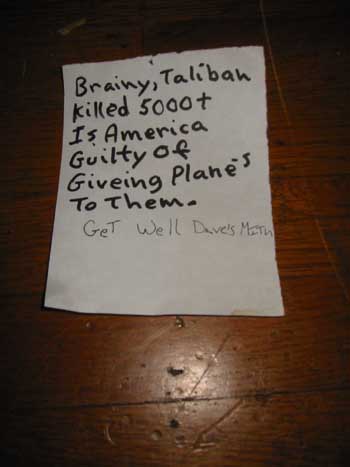 Brainy, Taliban
Killed 5000+
Is America
Guilty Of
Giveing Plane's
To Them.
Get Well Dave's